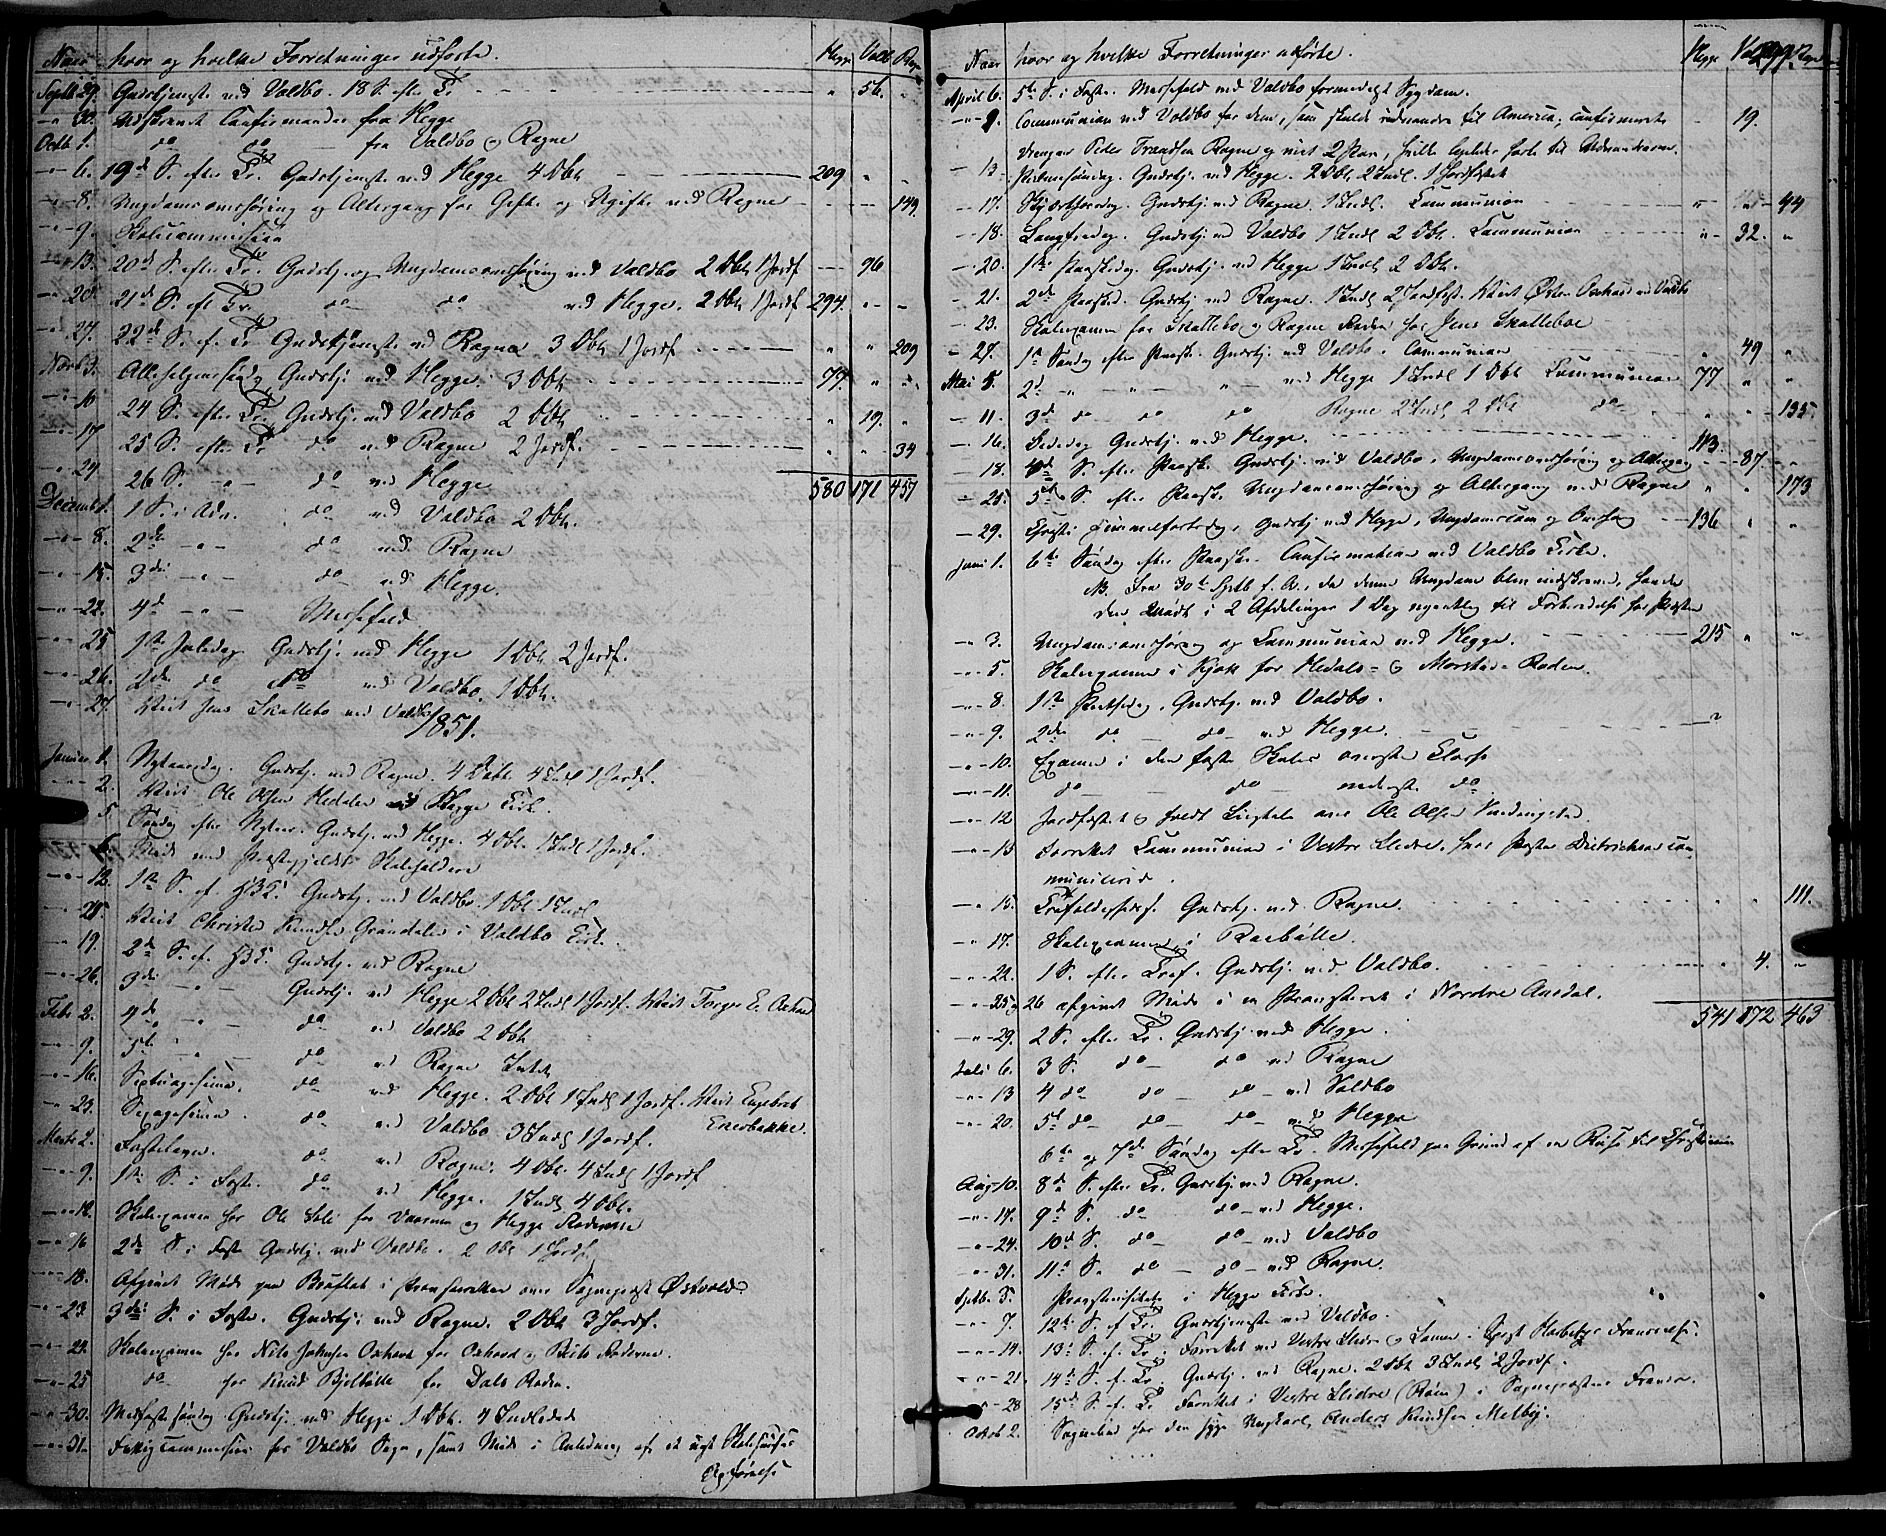 Naar hvor og hvilke Forretninger udførte. Hegge Voldb Rogne
Septb 29. Gudstjenest. ved Voldbo. 18 S. efter Tr. " 56. "
" 30. Confirmander fra Hegge
Octb 1. do do fra Voldbo & Rogne
" 6. 19d S. efter Tr. Gudstjenest. ved Hegge 4 Dbh 209 " "
" 8. Ungdomsomhøring og Altergang for Gifte og Ugifte ved Rogne 149.
" 9. Skolecommission
" 13. 20d S. efter Tr. Gudstj. og Ungdomsomhøring ved Voldbo 2 Dbh 1 Jordf 96
" 20. 21d S. eft Tr. do do ved Hegge. 2 Dbh 1 Jordf 294. " "
" 27. 22d S. e. Tr Gudstjenest. ved Rogne 3 Dbh 1 Jordf " " 209
Novb 3. Allehelgensdag Gudstj. ved Hegge. 3 Dbh 77. " "
" 10 24 S. efter Tr. Gudstj. ved Voldbo 2 Dbh " 19. "
" 17 25 S. efter Tr do ved Rogne 2 Jordf. " " 34
" 24 26 S. " do ved Hegge 580 171 451
Decemb 1. 1 S. i Adv. do ved Voldbo 2 Dbh.
" 8. 2den " do ved Rogne
" 15. 3die " do ved Hegge.
" 22. 4d " Messefald
" 25 1ste Juledag Gudstj. ved Hegge 1 Dbh 2 Jordf.
" 26. 2den do do ved Voldbo. 1 Dbh.
" 27. Viet Jens Skattebo ved Voldbo
1851.
Januar 1. Nytaarsdag. Gudstj. ved Rogne. 4 Dbh. 4 Indl 1 Jordf.
" 2. Viet Ole Olsen Hedalen ved Hegge Kirke.
5. Søndag efter Nytaar. Gudstj. ved Hegge. 4 Dbh. 1 Indl 1 Jordf.
6. Møde med Præstegjeldets Skoleholdere
" 12. 1ste S. ef. H3K. Gudstj. ved Voldbo. 1 Dbh 1 Indl
" Viet Christen Knudsen Grøndalen i Voldbo Kirke.
" 19. 2d S. ef. H3K. Gudstj. ved Rogne
" 26. 3die " Gudstj. ved Hegge 2 Dbh 2 Indl 1 Jordf. Viet Torger E.
Febr 2. 4d " do ved Voldbo 2 Dbh
" 9. 5te " do ved Rogne
" 16. Septuagesima. do ved Hegge. 2 Dbh 1 Indl 1 Jordf. Viet Engebret
" 23. Sexagesima. do ved Voldbo 3 Indl 1 Jordf.
Marts 2. Fastelavn. do ved Rogne. 4 Dbh. 4 Indl 1 Jordf
" 9. 1ste S. i Faste. do ved Hegge. 1 Indl 4 Dbh.
" 12. Skoleexamen hos Ole for og Hegge Roderne
" 16 2den S. i Faste Gudstj. ved Voldbo. 2 Dbh 1 Jordf.
" 18. Afgivet Møde paa i over Sogneprest Østvold
" 23 3die S. i Faste. Gudstj. ved Rogne. 2 Dbh 3 Jordf.
" 24. Skoleexamen hos Nils Johnsen Oxhovd for Oxhovd & Beito Roderne.
" 25 do hos Knud for Dals Roden.
" 30. Midfastesøndag Gudstj. ved Hegge 1 Dbh. 4 Indledede
" 31. Fattigcommission for Voldbo Sogn, samt Møde i Anledning af et nyt Skolehuses
Opførelse
Naar hvor og hvilke Forretninger udførte. Hegge Rogne
April 6. 5te S. i Faste. Messefald ved Voldbo formedelst Sygdom.
" 9. Communion ved Voldbo for dem, som skulde udvandre til America; confirmerede " 19.
Drengen Peder Trondsen Rogne og viet 2 Par, hvilke hørte til Udvandrerne.
13. Palmesøndag. Gudstj. ved Hegge. 2 Dbh. 2 Indl. 1 Jordfæstet
" 17. Skjærtorsdag. Gudstj. ved Rogne. 1 Indl. Communion " " 44
" 18. Langfredag. Gudstj. ved Voldbo 1 Indl 2 Dbh. Communion " 32. "
" 20. 1ste Paaskedag. Gudstj. ved Hegge 1 Indl 2 Dbh.
" 21. 2den Paasked. Gudstj ved Rogne. 1 Indl 2 Jordfæst. Viet Østen Oxhovd ved Voldbo
" 23. Skoleexamen for Skattebo og Rogne Roden hos Jens Skattebo
" 27. 1ste Søndag efter Paaske. Gudstj. ved Voldbo. Communion " 49 "
Mai 5. 2d " " ved Hegge 1 Indl 1 Dbh Communion 77 " "
" 11. 3d do do do Rogne 2 Indl 2 Dbh do " " 135
" 16. Bededag Gudstj. ved Hegge. 113.
" 18. 4de S. efter Paaske Gudstj. ved Voldbo, Ungdomsomhøring og Altergang 87
" 25. 5te S. efter Paaske Ungdomsomhøring og Altergang ved Rogne " " 173
" 29. Christi Himmelfartsdag, Gudstj ved Hegge, 136 " "
Juni 1. 6te Søndag efter Paaske. Confirmation ved Voldbo Kirke.
NB. Fra 30te Septb f. A., da denne Ungdom blev indskreven, havde
den mødt i 2 Afdelinger 1 Dag ugentlig til Forberedelse hos Præsten
" 3. Ungdomsomhøring og Communion ved Hegge. 215 " "
" 5. Skoleexamen i Kjøk for Hedals- & Morstad- Roden.
" 8. 1ste Pintsedag, Gudstj. ved Voldbo.
" 9. 2den do do ved Hegge.
" 10. Examen i den faste Skoles øverste Classe
" 11. do do nederste do
" 12 Jordfæstet & holdt Liigtale over Ole Olsen
" 13 Forrettet Communion i Vestre Slidre, hvor Pastor Dietrichson com-
municerede.
" 15. Trefoldighedsf. Gudstj. ved Rogne. " " 111.
" 17. Skoleexamen i Roebølle.
" 22. 1 S. efter Tref. Gudstj. ved Voldbo. " 4. "
" 25 & 26 afgivet Møde i en Provsteret i Nordre Aurdal. 541 172 463
" 29. 2 S. efter Tr. Gudstj. ved Hegge.
Juli 6. 3 S. do do ved Rogne
" 13 4 do do do ved Voldbo
" 20. 5te do do do ved Hegge
6te og 7de Søndag efter Tr. Messefald paa Grund af en Reise til Christiania
Aug. 10. 8de S. efter Tr. Gudstj. ved Rogne.
" 17. 9de S. do do ved Hegge.
" 24. 10de S. do do ved Voldbo
" 31. 11te S. do do ved Rogne.
Septb. 5. Provstevisitats i Hegge Kirke.
" 7. 12te S. ef Tr. Gudstjeneste ved Voldbo.
" 14. 13. S. f. Tr. Forrettet ved Vestre Slidre & Lomen i Sogprst Fraværelse.
" 21. 14de S. f. Tr. Gudstj. ved Rogne. 2 Dbh 3 Indl 2 Jordf.
" 28 15de S. f. Tr. Forrettet i Vestre Slidre (Røen) i Sognepræstens Fravær.
Octob 2. Sognebud hos den syge Ungkarl, Anders Knudsen Melby.